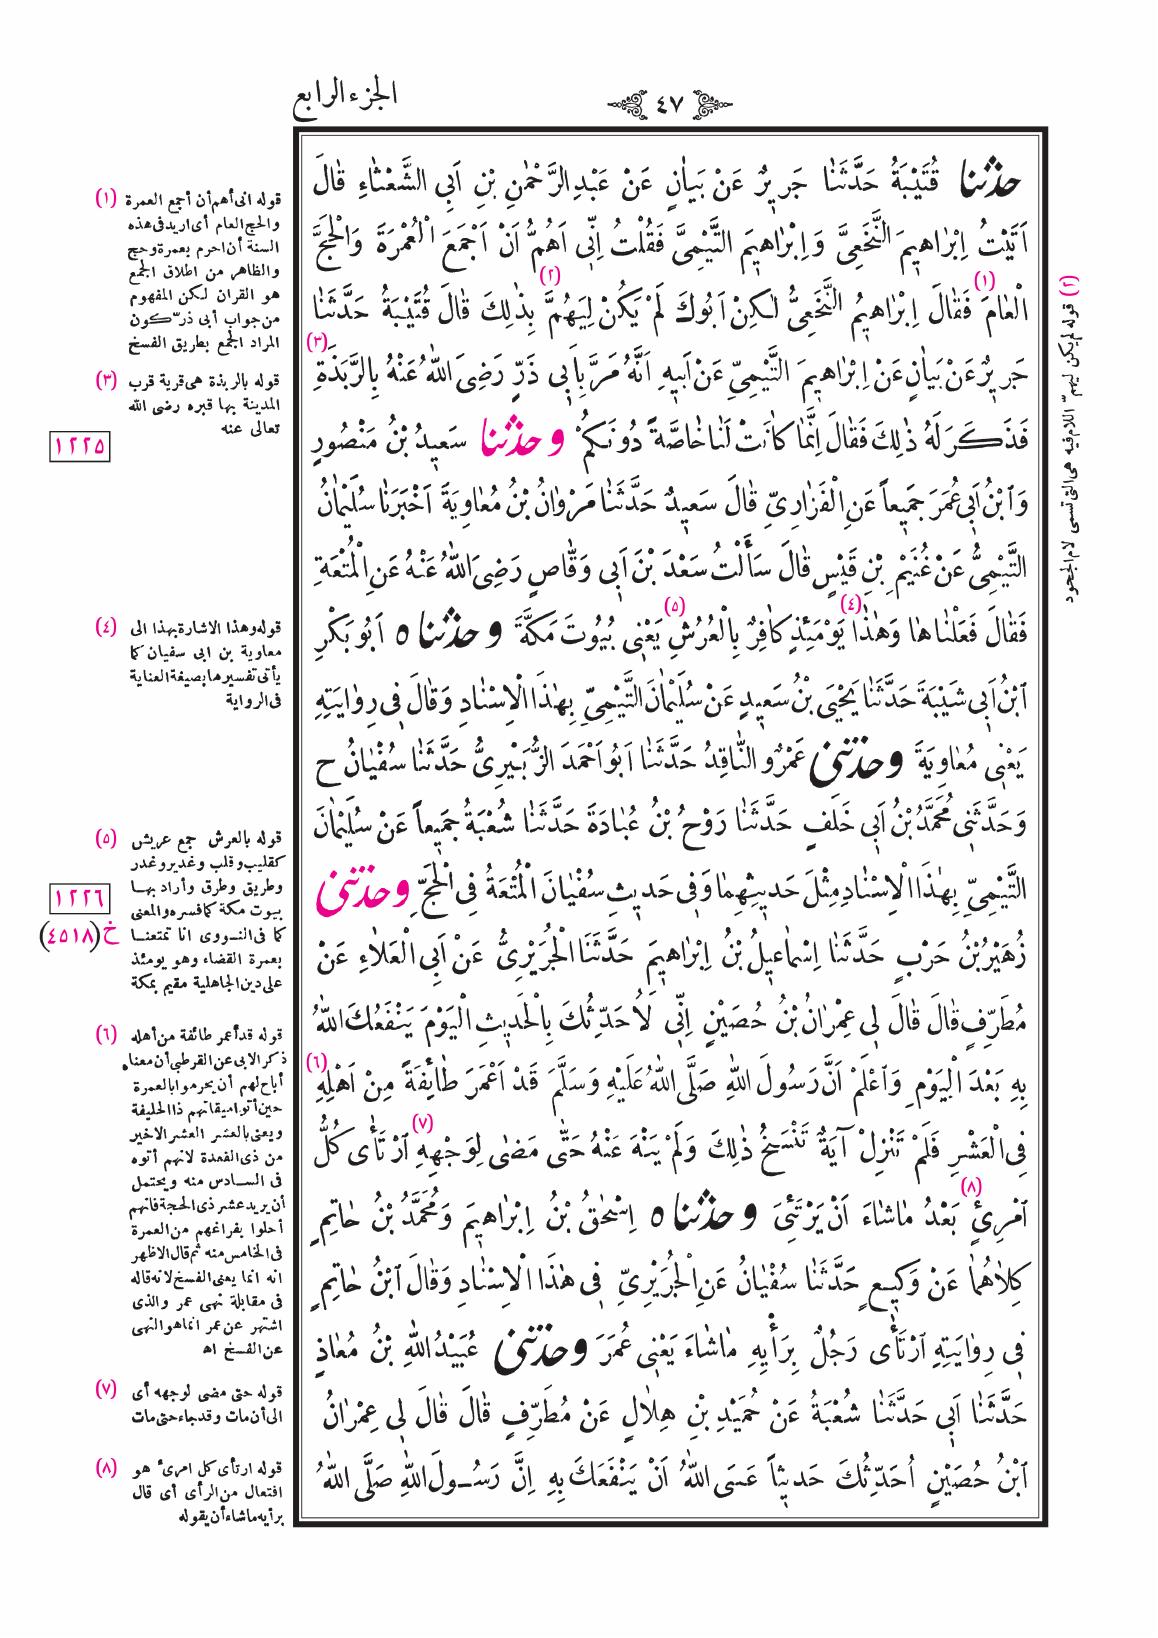 ٤٧
الجزء الرابع
حدثنا قُتَيْبَةُ حَدَّثَنَا جَرِيرٌ عَنْ بَيَانٍ عَنْ عَبْدِ الرَّحْمٰنِ بْنِ اَبِي الشَّعْثَاءِ قَالَ
اَتَيْتُ اِبْرَاهِيمَ النَّخَعِىَّ وَاِبْرَاهِيمَ التَّيْمِىَّ فَقُلْتُ اِنِّى اَهُمُّ اَنْ اَجْمَعَ الْعُمْرَةَ وَالْحَجَّ
الْعَامَ (١) فَقَالَ اِبْرَاهِيمُ النَّخَعِىُّ لٰكِنْ اَبُوكَ لَمْ يَكُنْ لِيَهُمَّ (٢) بِذٰلِكَ قَالَ قُتَيْبَةُ حَدَّثَنَا
جَرِيرٌ عَنْ بَيَانٍ عَنْ اِبْرَاهِيمَ التَّيْمِىِّ عَنْ اَبِيهِ اَنَّهُ مَرَّ بِاَبِى ذَرٍّ رَضِىَ اللّٰهُ عَنْهُ بِالرَّبَذَةِ (٣)
فَذَكَرَ لَهُ ذٰلِكَ فَقَالَ اِنَّمَا كَانَتْ لَنَا خَاصَّةً دُونَكُمْ و حدثنا سَعِيدُ بْنُ مَنْصُورٍ
وَابْنُ اَبِى عُمَرَ جَمِيعاً عَنِ الْفَزَارِىِّ قَالَ سَعِيدٌ حَدَّثَنَا مَرْوَانُ بْنُ مُعَاوِيَةَ اَخْبَرَنَا سُلَيْمَانُ
التَّيْمِىُّ عَنْ غُنَيْمِ بْنِ قَيْسٍ قَالَ سَأَلْتُ سَعْدَ بْنَ اَبِى وَقَّاصٍ رَضِىَ اللّٰهُ عَنْهُ عَنِ الْمُتْعَةِ
فَقَالَ فَعَلْنَاهَا وَهٰذَا (٤) يَوْمَئِذٍ كَافِرٌ بِالْعُرُشِ (٥) يَعْنِى بُيُوتَ مَكَّةَ و حدثناه اَبُو بَكْرِ
ابْنُ اَبِى شَيْبَةَ حَدَّثَنَا يَحْيَى بْنُ سَعِيدٍ عَنْ سُلَيْمَانَ التَّيْمِىِّ بِهٰذَا الْاِسْنَادِ وَقَالَ فِى رِوَايَتِهِ
يَعْنِى مُعَاوِيَةَ و حدثنى عَمْرٌو النَّاقِدُ حَدَّثَنَا اَبُو اَحْمَدَ الزُّبَيْرِىُّ حَدَّثَنَا سُفْيَانُ ح
وَحَدَّثَنِى مُحَمَّدُ بْنُ اَبِى خَلَفٍ حَدَّثَنَا رَوْحُ بْنُ عُبَادَةَ حَدَّثَنَا شُعْبَةُ جَمِيعاً عَنْ سُلَيْمَانَ
التَّيْمِىِّ بِهٰذَا الْاِسْنَادِ مِثْلَ حَدِيثِهِمَا وَفِى حَدِيثِ سُفْيَانَ الْمُتْعَةُ فِى الْحَجِّ و حدثنى
زُهَيْرُ بْنُ حَرْبٍ حَدَّثَنَا اِسْمَاعِيلُ بْنُ اِبْرَاهِيمَ حَدَّثَنَا الْجُرَيْرِىُّ عَنْ اَبِى الْعَلَاءِ عَنْ
مُطَرِّفٍ قَالَ قَالَ لِى عِمْرَانُ بْنُ حُصَيْنٍ اِنِّى لَاُحَدِّثُكَ بِالْحَدِيثِ الْيَوْمَ يَنْفَعُكَ اللّٰهُ
بِهِ بَعْدَ الْيَوْمِ وَاعْلَمْ اَنَّ رَسُولَ اللّٰهِ صَلَّى اللّٰهُ عَلَيْهِ وَسَلَّمَ قَدْ اَعْمَرَ طَائِفَةً مِنْ اَهْلِهِ (٦)
فِى الْعَشْرِ فَلَمْ تَنْزِلْ آيَةٌ تَنْسَخُ ذٰلِكَ وَلَمْ يَنْهَ عَنْهُ حَتَّى مَضَى لِوَجْهِهِ (٧) ارْتَأَى كُلُّ
امْرِئٍ (٨) بَعْدُ مَا شَاءَ اَنْ يَرْتَئِىَ و حدثناه اِسْحٰقُ بْنُ اِبْرَاهِيمَ وَمُحَمَّدُ بْنُ حَاتِمٍ
كِلَاهُمَا عَنْ وَكِيعٍ حَدَّثَنَا سُفْيَانُ عَنِ الْجُرَيْرِىِّ فِى هٰذَا الْاِسْنَادِ وَقَالَ ابْنُ حَاتِمٍ
فِى رِوَايَتِهِ ارْتَأَى رَجُلٌ بِرَأْيِهِ مَا شَاءَ يَعْنِى عُمَرَ و حدثنى عُبَيْدُ اللّٰهِ بْنُ مُعَاذٍ
حَدَّثَنَا اَبِى حَدَّثَنَا شُعْبَةُ عَنْ حُمَيْدِ بْنِ هِلَالٍ عَنْ مُطَرِّفٍ قَالَ قَالَ لِى عِمْرَانُ
ابْنُ حُصَيْنٍ اُحَدِّثُكَ حَدِيثاً عَسَى اللّٰهُ اَنْ يَنْفَعَكَ بِهِ اِنَّ رَسُولَ اللّٰهِ صَلَّى اللّٰهُ
(٢) قوله لم يكن ليهمّ اللام فيه هى التى تسمى لام الجحود
(١) قوله انى أهم أن أجمع العمرة
والحج العام أى اريد فى هذه
السنة أن احرم بعمرة وحج
والظاهر من اطلاق الجمع
هو القران لكن المفهوم
من جواب أبى ذرّ كون
المراد الجمع بطريق الفسخ
(٣) قوله بالربذة هى قرية قرب
المدينة بها قبره رضى الله
تعالى عنه
١٢٢٥
(٤) قوله وهذا الاشارة بهذا الى
معاوية بن ابى سفيان كما
يأتى تفسيرها بصيغة العناية
فى الرواية
(٥) قوله بالعرش جمع عريش
كقليب وقلب وغدير وغدر
وطريق وطرق وأراد بهـا
بيوت مكة كما فسره والمعنى
كما فى النـووى انا تمتعنـا
بعمرة القضاء وهو يومئذ
على دين الجاهلية مقيم بمكة
١٢٢٦
خ (٤٥١٨)
(٦) قوله قد أعمر طائفة من أهله
ذكر الابى عن القرطبى أن معناه
أباح لهم أن يحرموا بالعمرة
حين أتوا ميقاتهم ذا الحليفة
ويعنى بالعشر العشر الاخير
من ذى القعدة لانهم أتوه
فى السـادس منه ويحتمل
أن يريد عشر ذى الحجة فانهم
أحلوا بفراغهم من العمرة
فى الخامس منه ثم قال الاظهر
انه انما يعنى الفسخ لانه قاله
فى مقابلة نهى عمر والذى
اشتهر عن عمر انما هو النهى
عن الفسخ اه
(٧) قوله حتى مضى لوجهه أى
الى أن مات وقد جاء حتى مات
(٨) قوله ارتأى كل امرئ هو
افتعال من الرأى أى قال
برأيه ما شاء أن يقوله